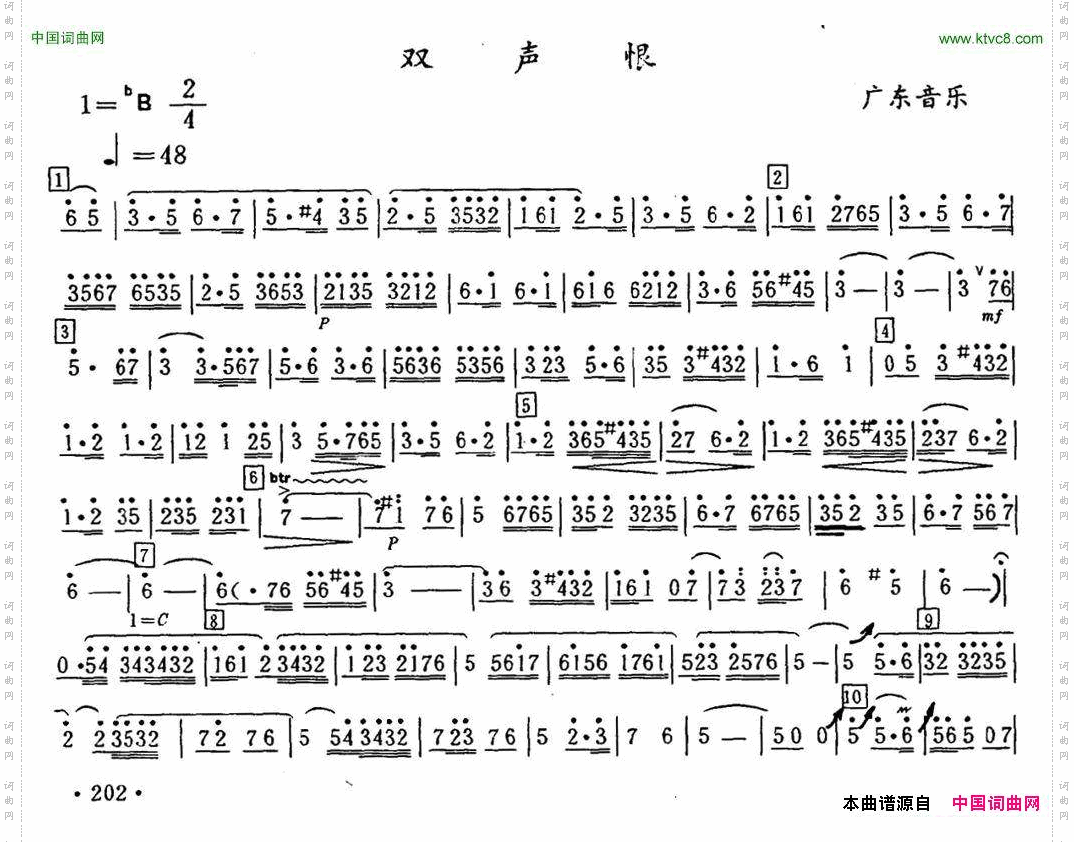 中国词曲网
www.ktvc8.com
双 声 恨
1=ᵇB 2/4
广东音乐
♩=48
1 2
65 | 3·5 6·7 | 5·#4 35 | 2·5 3532 | 161 2·5 | 3·5 6·2 | 161 2765 | 3·5 6·7 |
3567 6535 | 2·5 3653 | 2135 3212 | 6·1 6·1 | 616 6212 | 3·6 56#45 | 3 — | 3 — | 3 ∨ 76 |
P mf
3 4
5· 67 | 3 3·567 | 5·6 3·6 | 5636 5356 | 323 5·6 | 35 3#432 | 1·6 1 | 05 3 #432 |
5
1·2 1·2 | 12 1 25 | 3 5·765 | 3·5 6·2 | 1·2 365#435 | 27 6·2 | 1·2 365#435 | 237 6·2 |
6 btr
1·2 35 | 235 231 | 7 — | 7#1 76 | 5 6765 | 352 3235 | 6·7 6765 | 352 35 | 6·7 567 |
P
7
6 — | 6 — | 6(·76 56#45 | 3 — | 36 3#432 | 161 07 | 73 237 | 6 #5 | 6 —) |
1=C 8 9
0·54 343432 | 161 23432 | 123 2176 | 5 5617 | 6156 1761 | 523 2576 | 5 — | 5 5·6 | 32 3235 |
10
2 23532 | 72 76 | 5 543432 | 723 76 | 5 2·3 | 7 6 | 5 — | 50 0 | 5 5·6 | 565 07 |
·202·
本曲谱源自 中国词曲网